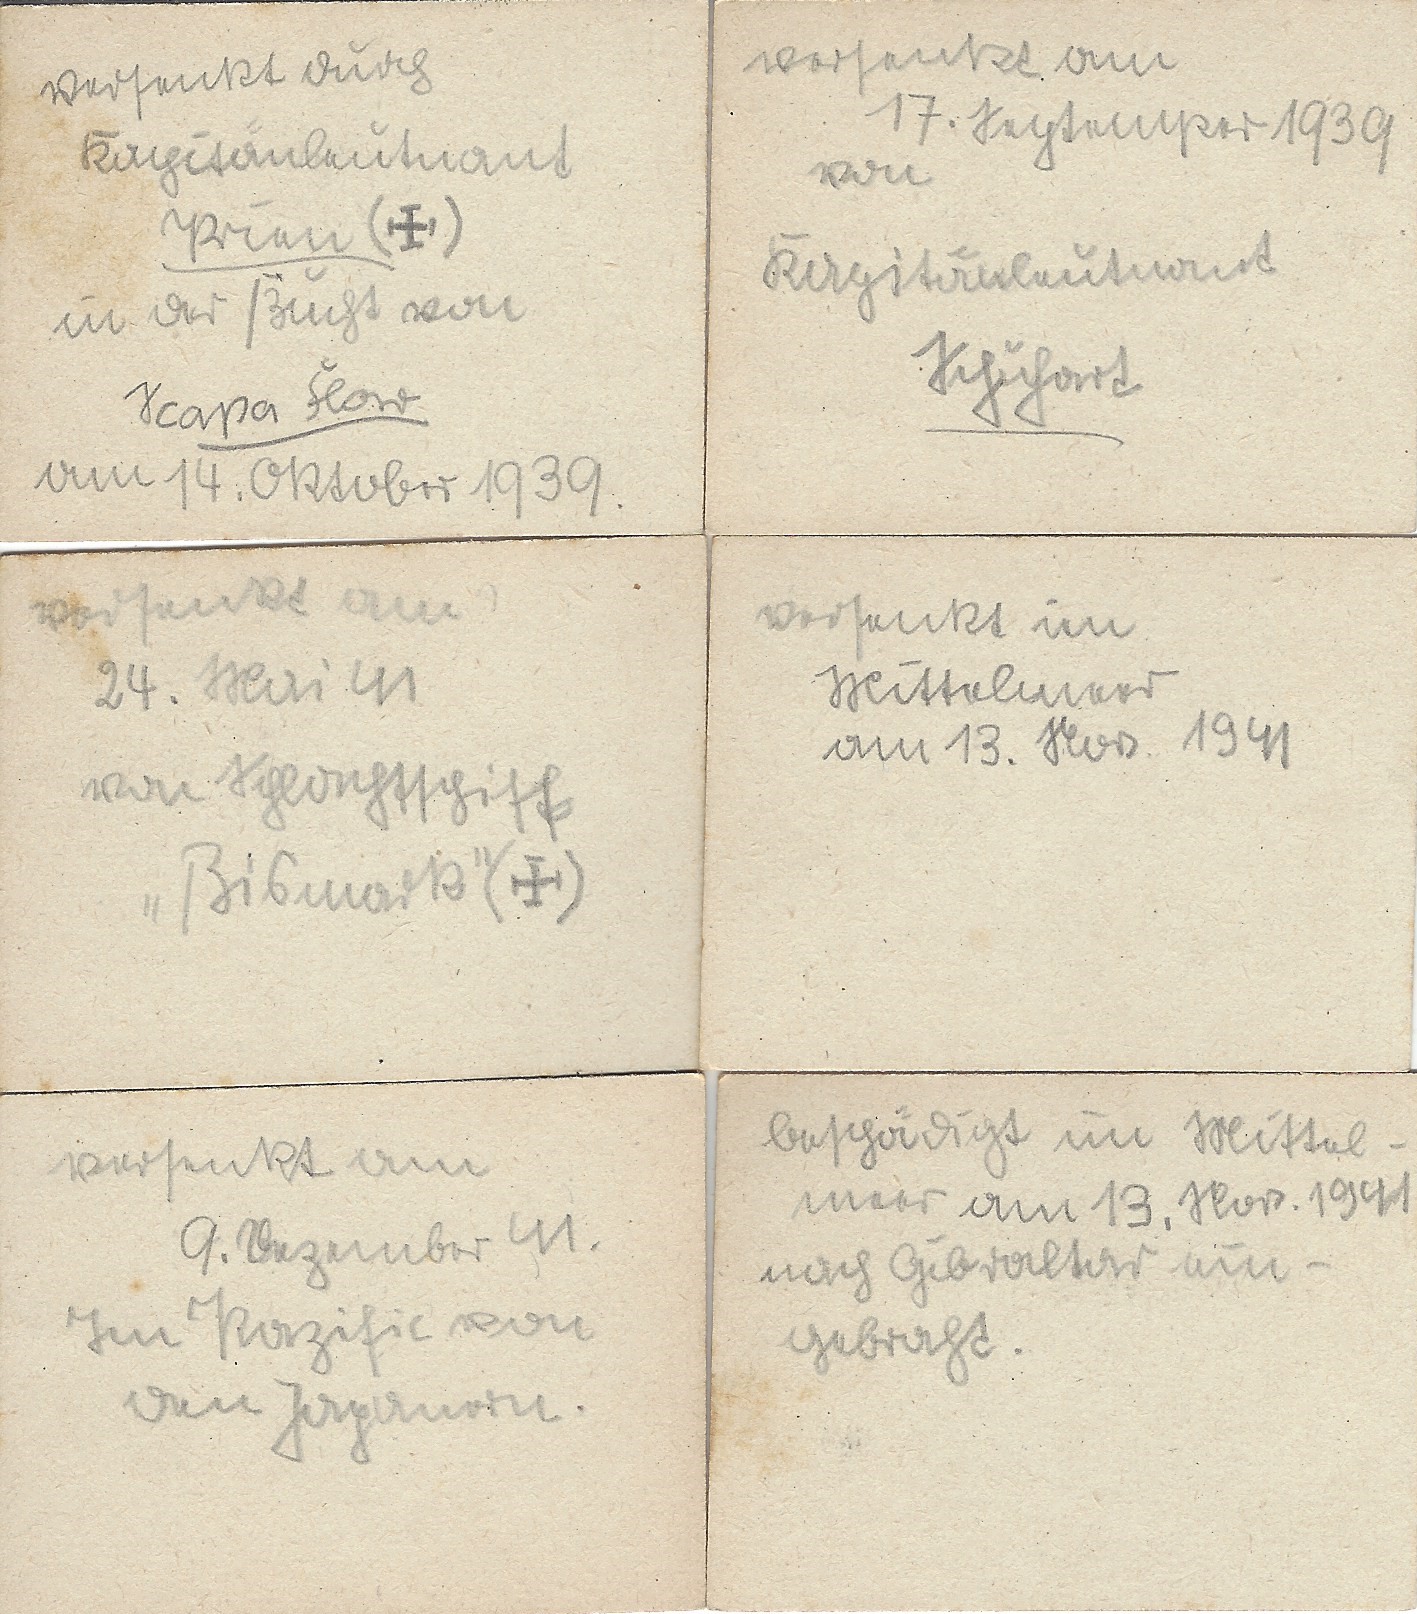 versenkt durch
Kapitänleutnant
Prien (✠)
in der Bucht von
Scapa Flow
am 14. Oktober 1939.
versenkt am
17. September 1939
von
Kapitänleutnant
Schuhart
versenkt am
24. Mai 41
von Schlachtschiff
„Bismark" (✠)
versenkt im
Mittelmeer
am 13. Nov. 1941
versenkt am
9. Dezember 41.
Im Pazific von
den Japanern.
beschädigt im Mittel-
meer am 13. Nov. 1941
nach Gibraltar ein-
gebracht.